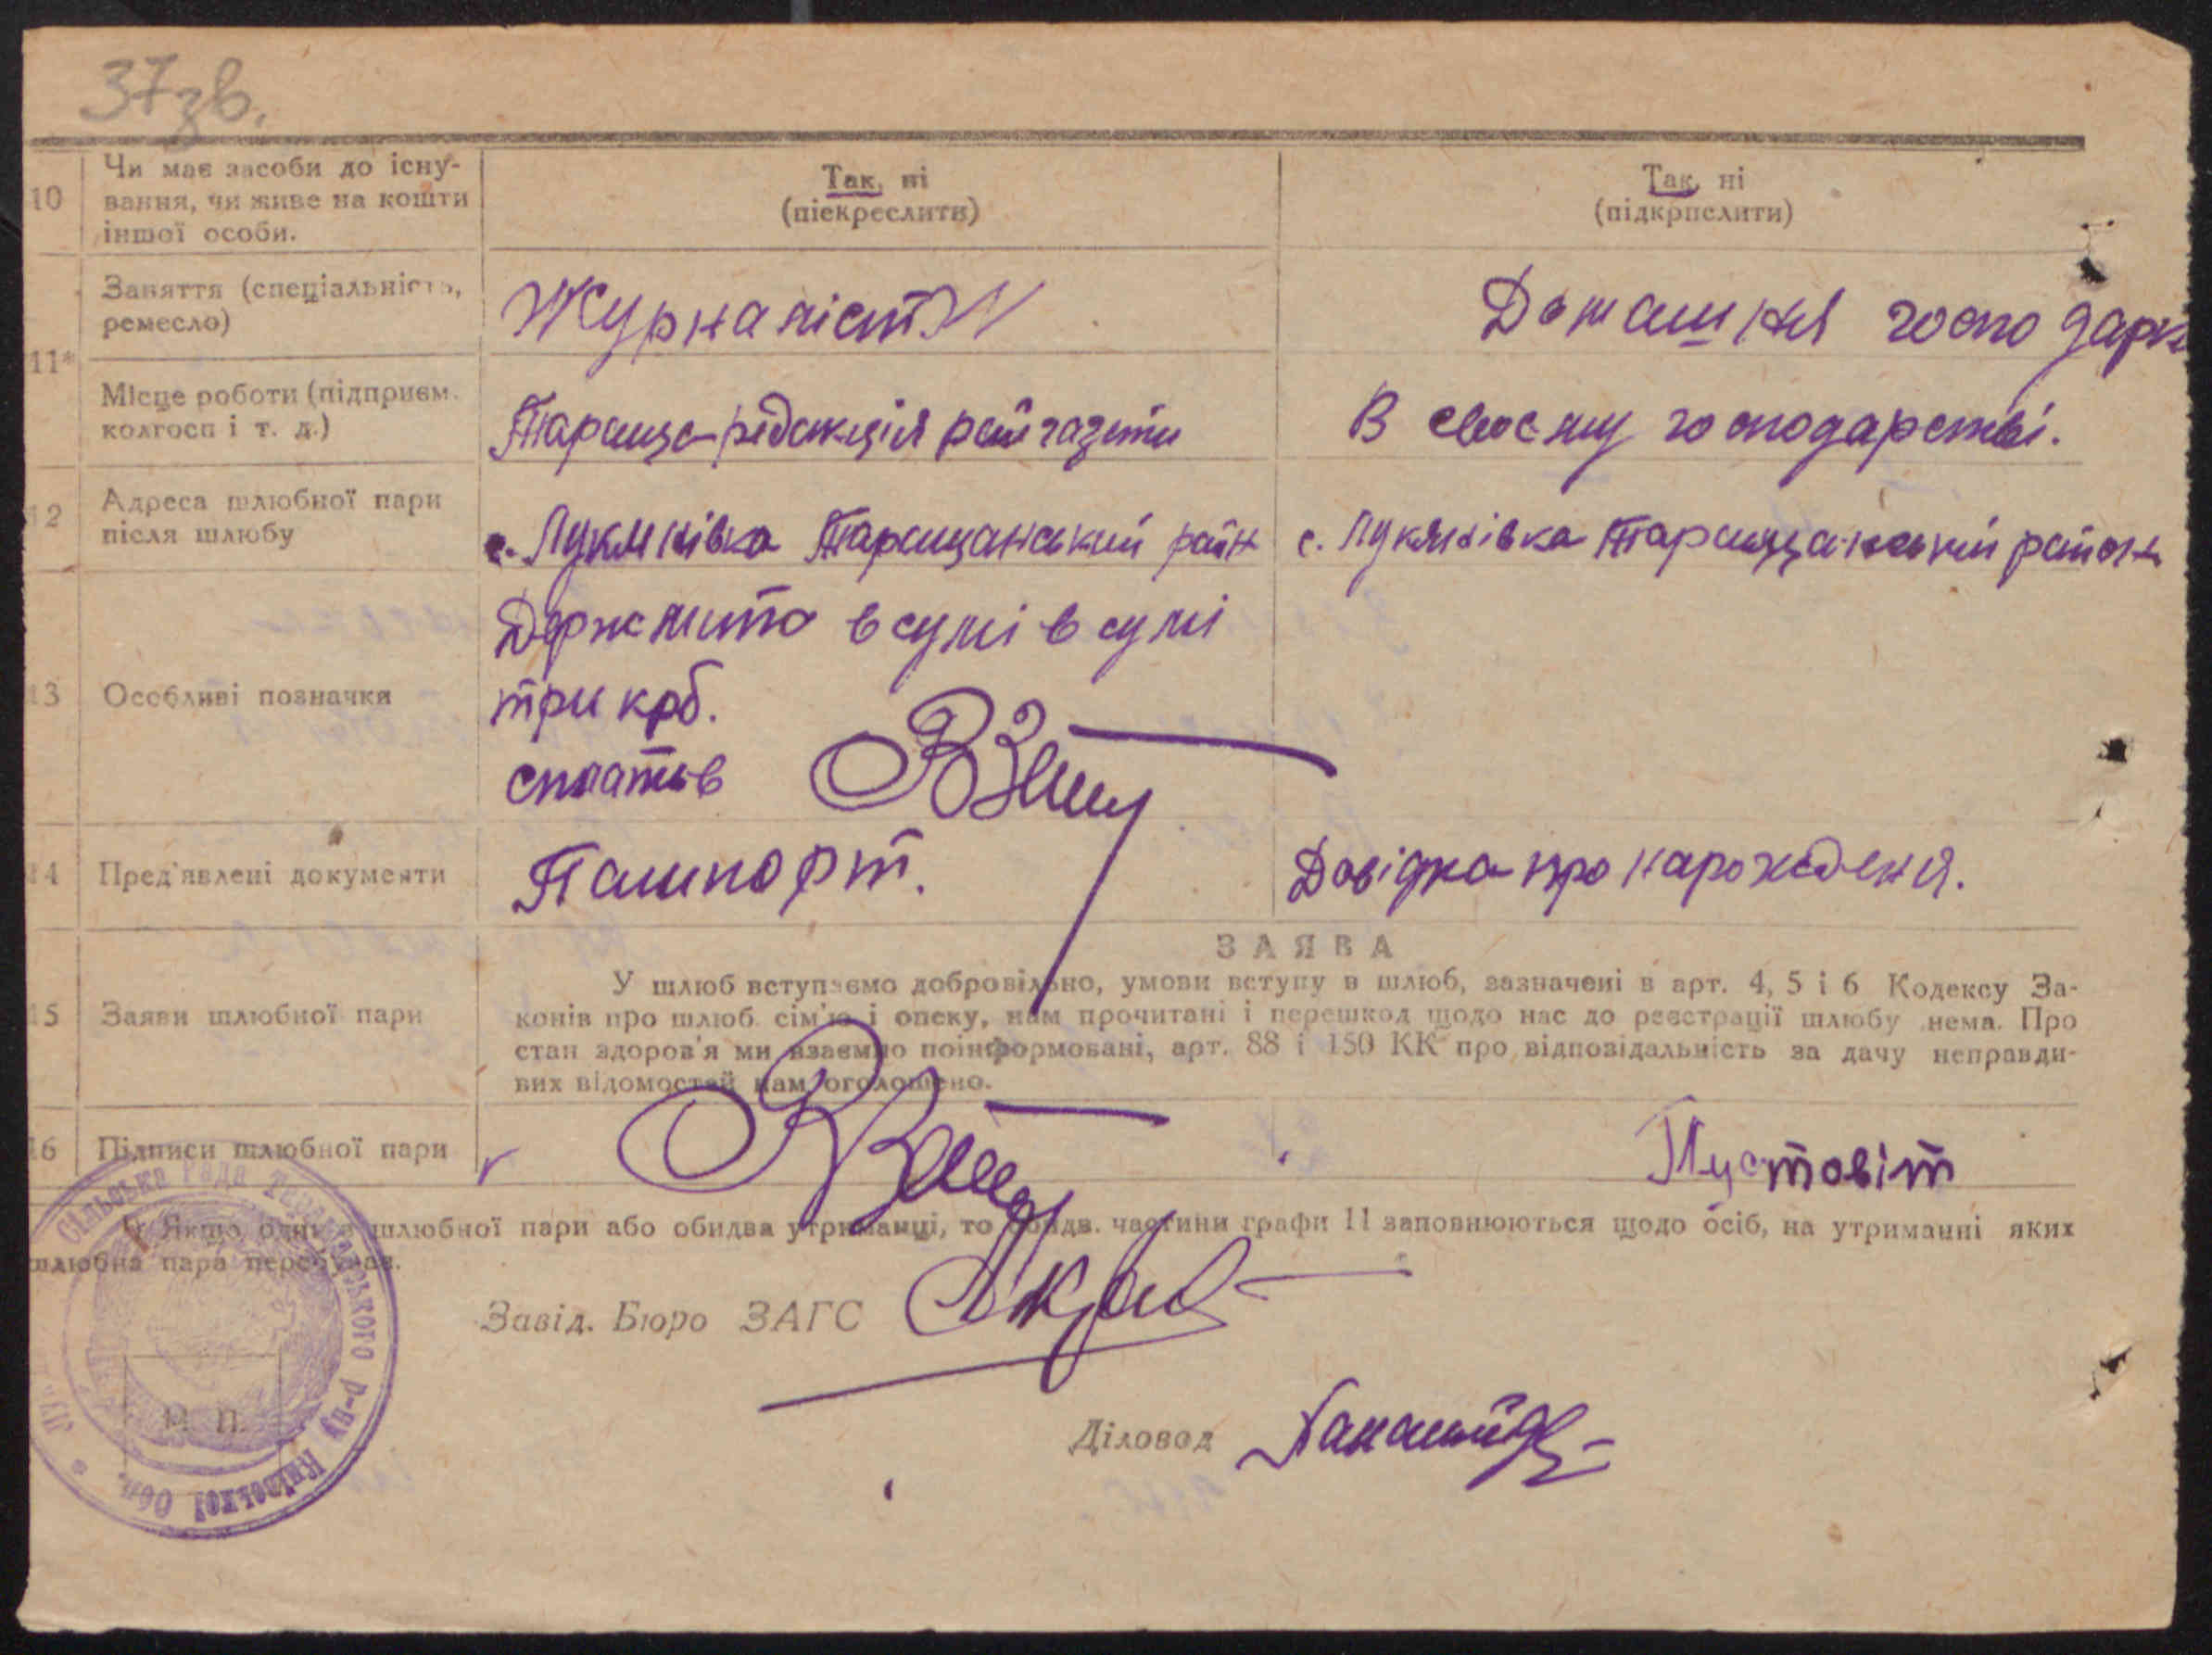 37зв.
10
Чи має засоби до існу-
вання, чи живе на кошти
іншої особи.
Так, ні
(піекреслити)
Так, ні
(підкрпслити)
11*
Заняття (спеціальність,
ремесло)
Журналіст
Домашня господарк
Місце роботи (підприєм.
колгосп і т. д.)
Тараща редакція райгазети
В своєму господарстві.
12
Адреса шлюбної пари
після шлюбу
с. Лукянівка Таращанський райн
с. Лукянівка Таращанський район
13
Особливі позначки
Держмито в сумі в сумі
три крб.
сплатив
14
Пред'явлені документи
Пашпорт.
Довідка про народження.
15
Заяви шлюбної пари
ЗАЯВА
У шлюб вступаємо добровільно, умови вступу в шлюб, зазначені в арт. 4, 5 і 6 Кодексу За-
конів про шлюб сім'ю і опеку, нам прочитані і перешкод щодо нас до реєстрації шлюбу нема. Про
стан здоров'я ми взаємно поінформовані, арт. 88 і 150 КК про відповідальність за дачу неправди-
вих відомостей нам оголошено.
16
Підписи шлюбної пари
Пустовіт
*) Якщо один з шлюбної пари або обидва утриманці, то обидв. частини графи 11 заповнюються щодо осіб, на утриманні яких
шлюбна пара перебував.
Завід. Бюро ЗАГС
Діловод
М. П.
Сільська Рада Таращанського р-ну Київської Обл.